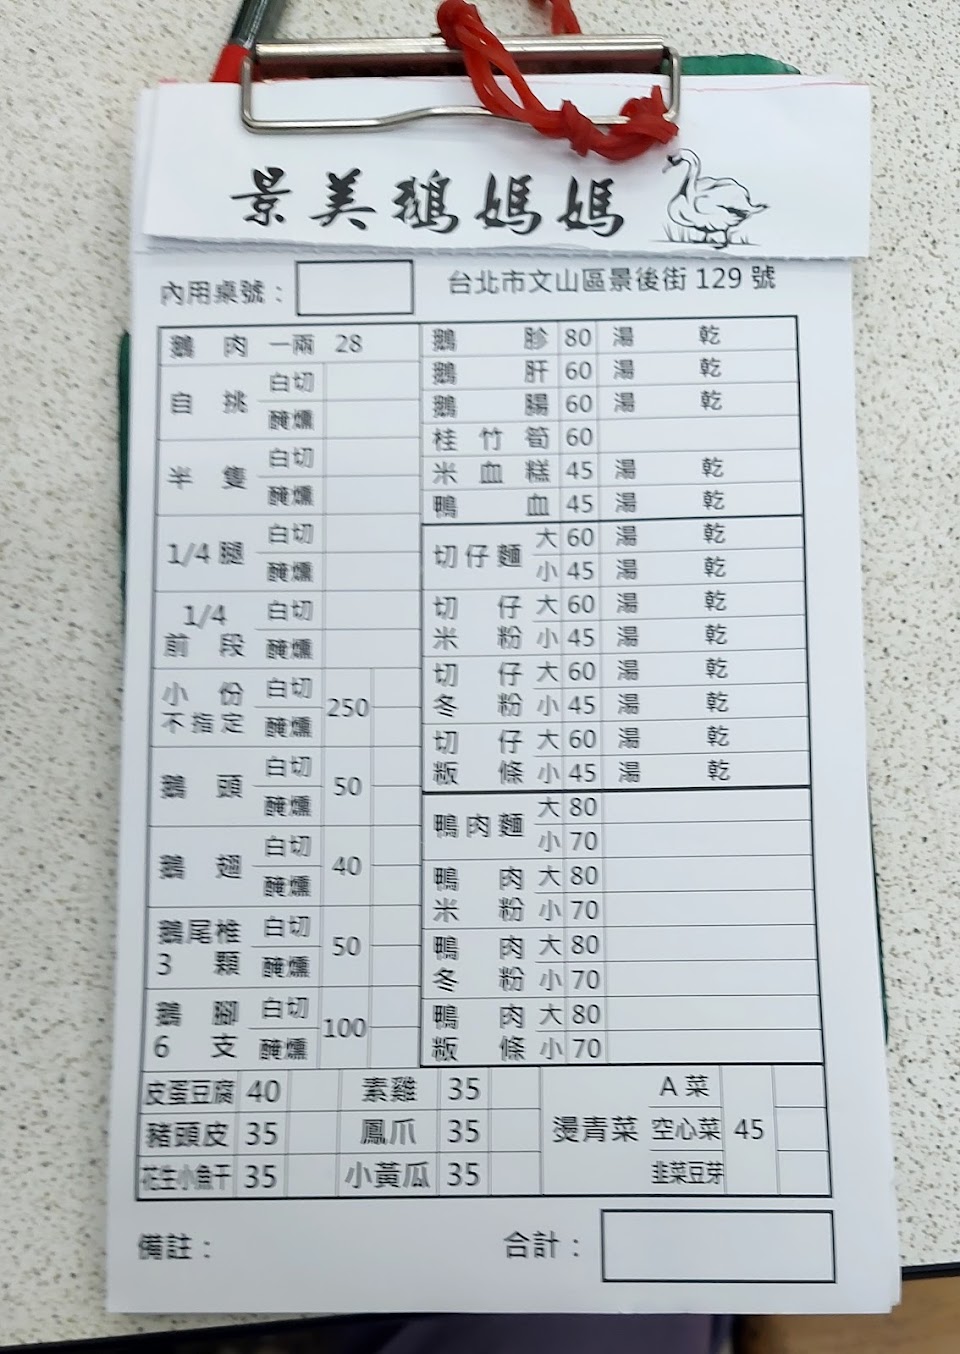 景美鵝媽媽
內用桌號：
台北市文山區景後街 129 號
鵝肉 一兩 28
自挑 白切
醃燻
半隻 白切
醃燻
1/4 腿 白切
醃燻
1/4 前段 白切
醃燻
小份不指定 白切 250
醃燻
鵝頭 白切 50
醃燻
鵝翅 白切 40
醃燻
鵝尾椎 3 顆 白切 50
醃燻
鵝腳 6 支 白切 100
醃燻
鵝胗 80 湯 乾
鵝肝 60 湯 乾
鵝腸 60 湯 乾
桂竹筍 60
米血糕 45 湯 乾
鴨血 45 湯 乾
切仔麵 大 60 湯 乾
小 45 湯 乾
切仔米粉 大 60 湯 乾
小 45 湯 乾
切仔冬粉 大 60 湯 乾
小 45 湯 乾
切仔粄條 大 60 湯 乾
小 45 湯 乾
鴨肉麵 大 80
小 70
鴨肉米粉 大 80
小 70
鴨肉冬粉 大 80
小 70
鴨肉粄條 大 80
小 70
皮蛋豆腐 40 素雞 35
豬頭皮 35 鳳爪 35
花生小魚干 35 小黃瓜 35
燙青菜 A 菜
空心菜 45
韭菜豆芽
備註：
合計：